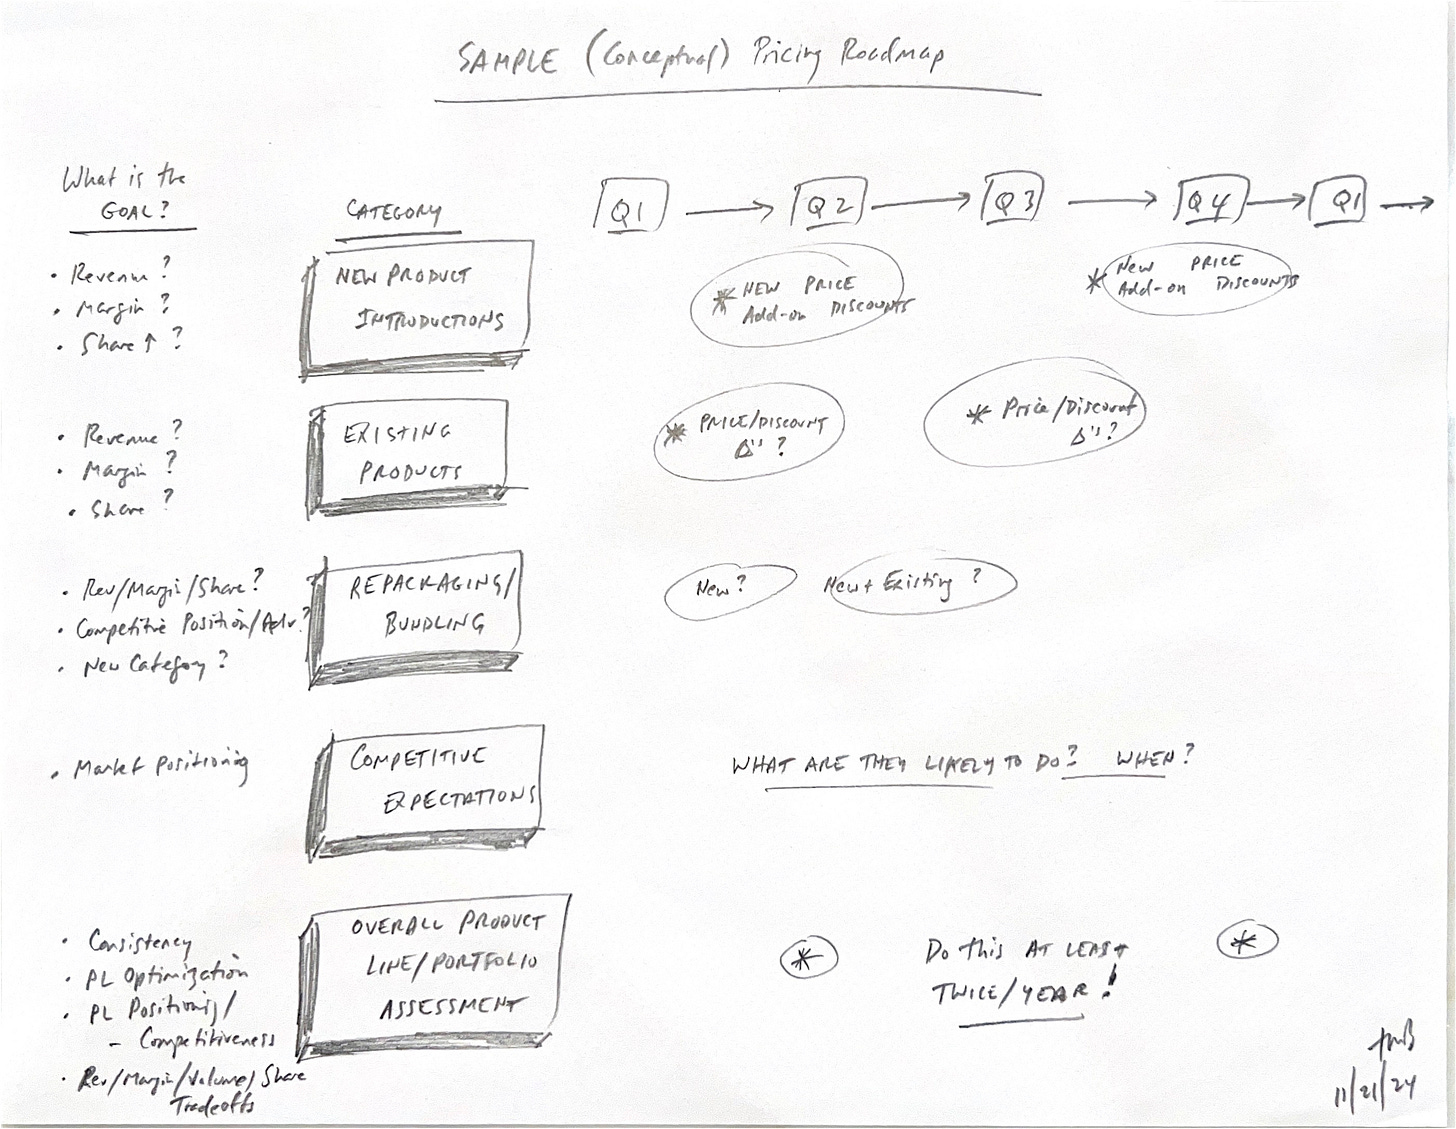 SAMPLE (Conceptual) Pricing Roadmap
What is the
GOAL?
CATEGORY
Q1
Q2
Q3
Q4
Q1
• Revenue?
• Margin?
• Share ↑ ?
NEW PRODUCT
INTRODUCTIONS
* NEW PRICE
Add-on DISCOUNTS
* New PRICE
Add-on DISCOUNTS
• Revenue?
• Margin?
• Share?
EXISTING
PRODUCTS
* PRICE/DISCOUNT
Δ's ?
* Price/Discount
Δ's ?
• Rev/Margin/Share?
• Competitive Position/Adv.?
• New Category?
REPACKAGING/
BUNDLING
New?
New + Existing?
• Market Positioning
COMPETITIVE
EXPECTATIONS
WHAT ARE THEY LIKELY TO DO? WHEN?
• Consistency
• PL Optimization
• PL Positioning/
- Competitiveness
• Rev/Margin/Volume/Share
Tradeoffs
OVERALL PRODUCT
LINE/PORTFOLIO
ASSESSMENT
*
Do this AT LEAST
TWICE/YEAR!
*
11/21/24